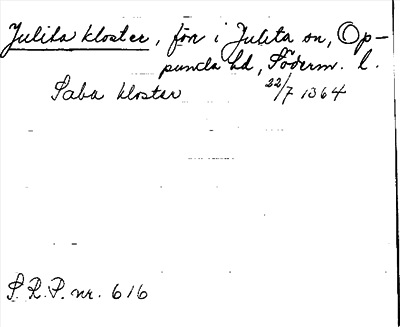 Julita kloster, förr i Julita sn, Op-
punda hd, Söderm. l.
Saba kloster 22/7 1364
S.R.P. nr. 616